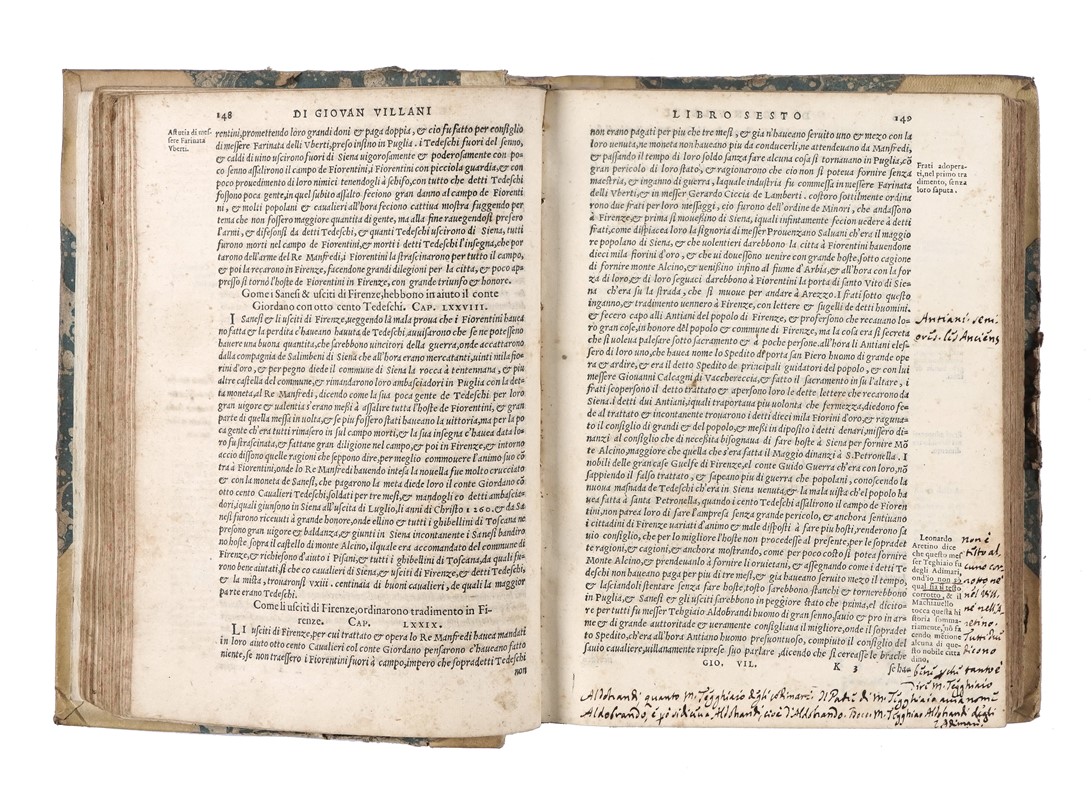 148
DI GIOVAN VILLANI
Astutia di mes-
sere Farinata
Vberti.
rentini, promettendo loro grandi doni & paga doppia, & cio fu fatto per consiglio
di messere Farinata delli Vberti, preso insino in Puglia. i Tedeschi fuori del senno,
& caldi di uino uscirono fuori di Siena uigorosamente & poderosamente con po-
co senno assalirono il campo de Fiorentini, i Fiorentini con picciola guardia, & con
poco prouedimento di loro nimici tenendogli à schifo, con tutto che detti Tedeschi
fossono poca gente, in quel subito assalto feciono gran danno al campo de Fiorenti
ni, & molti popolani & caualieri all'hora feciono cattiua mostra fuggendo per
tema che non fossero maggiore quantita di gente, ma alla fine rauegendosi presero
l'armi, & difesonsi da detti Tedeschi, & quanti Tedeschi uscirono di Siena, tutti
furono morti nel campo de Fiorentini, & morti i detti Tedeschi l'insegna, che por
tarono dell'arme del Re Manfredi, i Fiorentini la strascinarono per tutto il campo,
& poi la recarono in Firenze, facendone grandi dilegioni per la citta, & poco ap-
presso si tornò l'hoste de Fiorentini in Firenze, con grande triunfo & honore.
Come i Sanesi & usciti di Firenze, hebbono in aiuto il conte
Giordano con otto cento Tedeschi. CAP. LXXVIII.
I Sanesi & li usciti di Firenze, ueggendo la mala proua che i Fiorentini hauea
no fatta & la perdita c'haueano hauuta de Tedeschi, auuisarono che se ne potesseno
hauere una buona quantita, che sarebbono uincitori della guerra, onde accattarono
dalla compagnia de Salimbeni di Siena che all'hora erano mercatanti, uinti mila fio-
rini d'oro, & per pegno diede il commune di Siena la rocca à tentennana, & piu
altre castella del commune, & rimandarono loro ambasciadori in Puglia con la det-
ta moneta, al Re Manfredi, dicendo come la sua poca gente de Tedeschi per loro
gran uigore & ualentia s'erano messi à assalire tutta l'hoste de Fiorentini, & gran
parte di quella messa in uolta, & se piu fossero stati haueano la uittoria, ma per la po
ca gente ch'era tutti rimasero in sul campo morti, & la sua insegna c'hauea data lo-
ro fu strascinata, & fattane gran diligione nel campo, & poi in Firenze, & intorno
accio dissono quelle ragioni che seppono dire, per meglio commouere l'animo suo cō
trà Fiorentini, onde lo Re Manfredi hauendo intesa la nouella fue molto crucciato
& con la moneta de Sanesi, che pagarono la meta diede loro il conte Giordano cō
otto cento Caualieri Tedeschi, soldati per tre mesi, & mandogli co detti ambascia-
dori, iquali giunsono in Siena all'uscita di Luglio, li anni di Christo 1260. & da Sa
nesi furono riceuuti à grande honore, onde ellino & tutti i ghibellini di Toscana ne
presono gran uigore & baldanza, & giunti in Siena incontanente i Sanesi bandiro
no hoste sopra il castello di monte Alcino, ilquale era accomandato del commune di
Firenze, & richiesono d'aiuto i Pisani, & tutti i ghibellini di Toscana, da quali fu-
rono bene aiutati, si che co caualieri di Siena, & usciti di Firenze, & detti Tedeschi,
& la mista, trouaronsi vxiii. centinaia di buoni caualieri, de quali la maggior
parte erano Tedeschi.
Come li usciti di Firenze, ordinarono tradimento in Fi-
renze. CAP. LXXIX.
LI usciti di Firenze, per cui trattato & opera lo Re Manfredi hauea mandati
in loro aiuto otto cento Caualieri col conte Giordano pensarono c'haueano fatto
niente, se non traessero i Fiorentini fuori à campo, impero che sopradetti Tedeschi
non
LIBRO SESTO
149
non erano pagati per piu che tre mesi, & gia n'haueano seruito uno & mezo con la
loro uenuta, ne moneta haueano piu da conducerli, ne attendeuano da Manfredi,
& passando il tempo di loro soldo sanza fare alcuna cosa si tornauano in Puglia, cō
gran pericolo di loro stato, & ragionarono che cio non si poteua fornire senza
maestria, & inganno di guerra, laquale industria fu commessa in messere Farinata
delli Vberti, & in messer Gerardo Ciccia de Lamberti. costoro sottilmente ordina
rono due frati per loro messaggi, cio furono dell'ordine de Minori, che andassono
à Firenze, & prima si mouessino di Siena, iquali infintamente fecion uedere à detti
frati, come dispiacea loro la signoria di messer Prouenzano Saluani ch'era il maggio
re popolano di Siena, & che uolentieri darebbono la città à Fiorentini hauendone
dieci mila fiorini d'oro, & che ui douessono uenire con grande hoste, sotto cagione
di fornire monte Alcino, & uenissino infino al fiume d'Arbia, & all'hora con la for
za di loro, & di loro seguaci darebbono à Fiorentini la porta di santo Vito di Sie-
na ch'era su la strada, che si muoue per andare à Arezzo. I frati sotto questo
inganno, & tradimento uennero à Firenze, con lettere & sugelli de detti huomini.
& fecero capo alli Antiani del popolo di Firenze, & profersono che recauano lo-
ro gran cose, in honore del popolo & commune di Firenze, ma la cosa era si secreta
che si uoleua palesare sotto sacramento & à poche persone. all'hora li Antiani eles-
sero di loro uno, che hauea nome lo Spedito di porta san Piero huomo di grande ope
ra & ardire, & era il detto Spedito de principali guidatori del popolo, & con lui
messere Giouanni Calcagni di Vacchereccia, & fatto il sacramento in su l'altare, i
frati scopersono il detto trattato & apersono loro le dette lettere che recarono da
Siena. i detti dui Antiani, iquali traportaua piu uolonta che fermezza, diedono fe-
de al trattato & incontanente trouarono i detti dieci mila Fiorini d'oro, & raguna-
to il consiglio di grandi & del popolo, & messi in diposito i detti denari, missero di-
nanzi al consiglio che di necessita bisognaua di fare hoste à Siena per fornire Mō
te Alcino, maggiore che quella che s'era fatta il Maggio dinanzi à S. Petronella. I
nobili delle gran case Guelfe di Firenze, el conte Guido Guerra ch'era con loro, nō
sappiendo il falso trattato, & sapeano piu di guerra che popolani, conoscendo la
nuoua masnada de Tedeschi ch'era in Siena uenuta, & la mala uista ch'el popolo ha
uea fatta à santa Petronella, quando i cento Tedeschi assalirono il campo de Fioren
tini, non parea loro di fare l'impresa senza grande pericolo, & anchora sentiuano
i cittadini di Firenze uariati d'animo & male disposti à fare piu hosti, renderono sa
uio consiglio, che per lo migliore l'hoste non procedesse al presente, per le sopradet
te ragioni, & cagioni, & anchora mostrando, come per poco costo si potea fornire
Monte Alcino, & prendeuanlo à fornire li oruietani, & assegnando come i detti Te
deschi non haueano paga per piu di tre mesi, & gia haueano seruito mezo il tempo,
& lasciandoli stentare senza fare hoste, tosto sarebbono stanchi & tornerebbono
in Puglia, & Sanesi & gli usciti sarebbono in peggiore stato che prima, el dicito-
re per tutti fu messer Tehghiaio Aldobrandi huomo di gran senno, sauio & pro in ar-
me & di grande autoritade & ueramente consigliaua il migliore, onde il sopradet
to Spedito, ch'era all'hora Antiano huomo presuntuoso, compiuto il consiglio del
sauio caualiere, uillanamente riprese suo parlare, dicendo che si cercasse le brache
GIO. VIL. K 3 se hau
Frati adopera-
ti, nel primo tra
dimento, senza
loro saputa.
Antiani: seni-
ores. les Anciens
Leonardo
Aretino dice
che questo mes
ser Teghiaio fu
degli Adimari,
ond'io non sò
qual sia il testo
corrotto, & il
Machiauello
tocca questa hi
storia somma-
riamente, nō fa
cendo mētione
alcuna di que-
sto nobile citta
dino.
non è
testo al,
cuno cor,
rotto nè
nel Vill.
nè nell'A,
retino.
Tutti dui
dicono
bene, perchè tanto è
Dire M. Tegghiaio
Aldobrandi quanto M. Tegghiaio degli Adimari. Il Padre di M. Tegghiaio avea nome
Aldobrando, e poi si diceva, Aldobrandi, cioè d'Aldobrando. Ecco M. Tegghiaio Aldobrandi degli
Adimari.